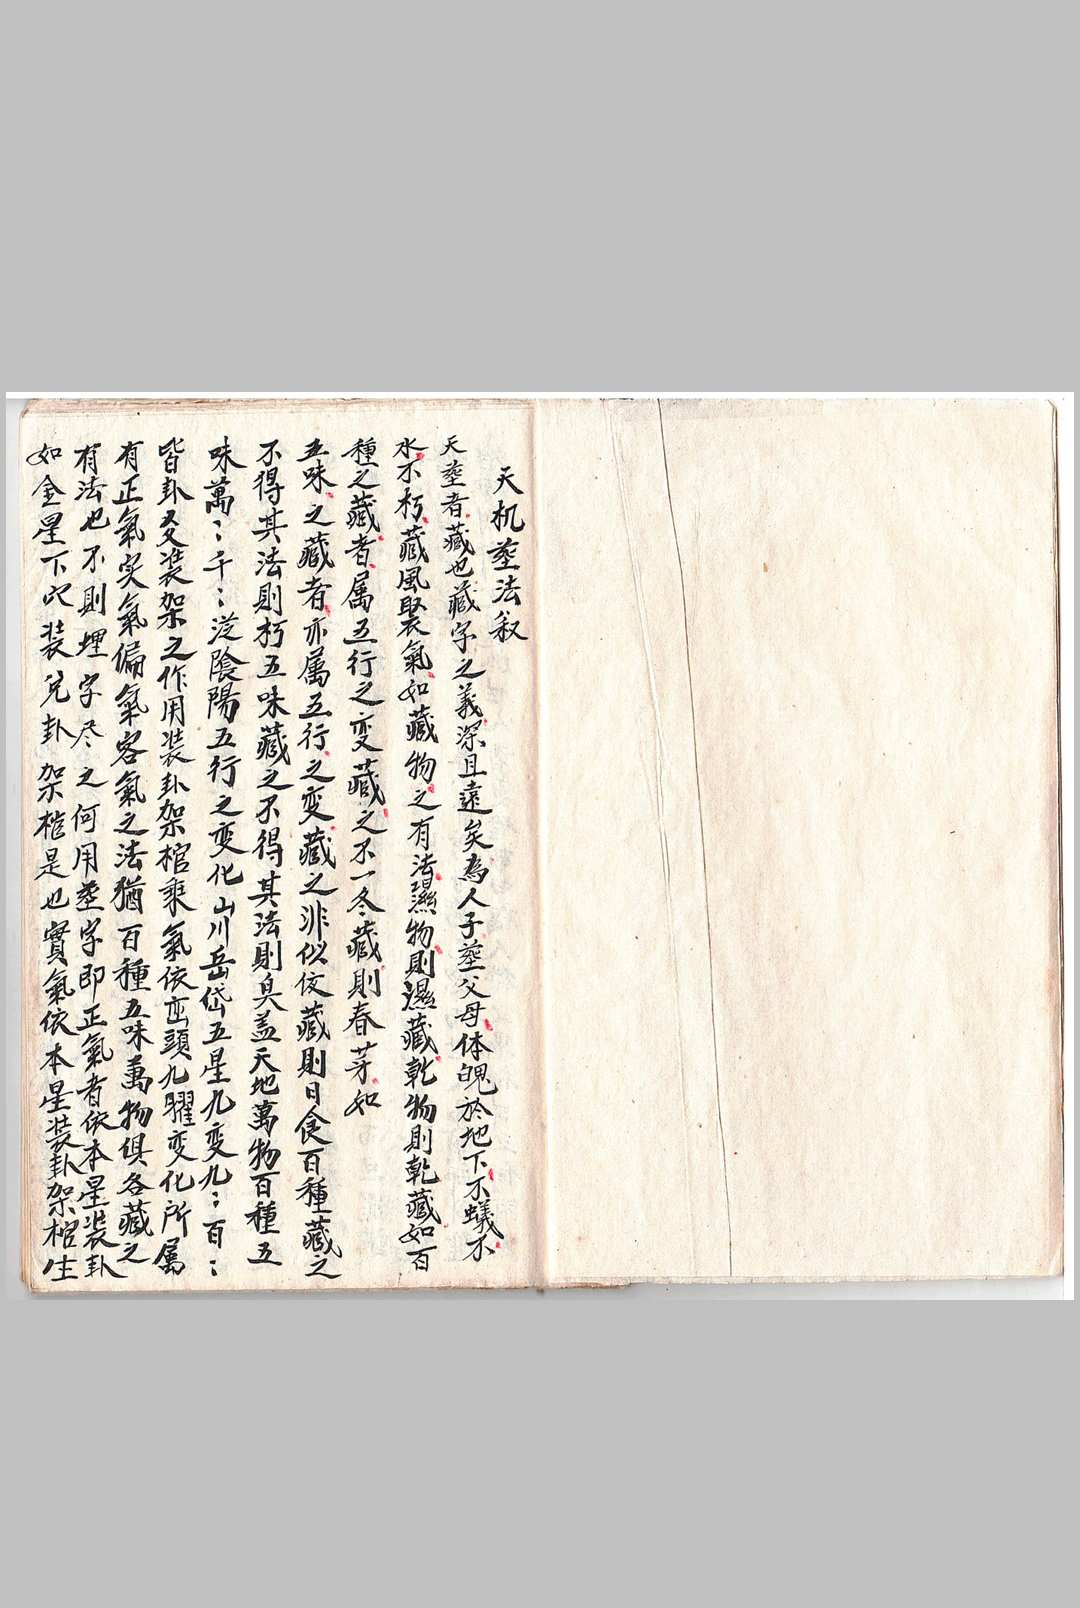 天机塟法叙
天塟者藏也藏字之義深且遠矣為人子塟父母体魄於地下不蟻不
水不朽藏風聚氣如藏物之有法濕物則濕藏乾物則乾藏如百
種之藏者属五行之变藏之不一冬藏則春芽如
五味之藏者亦属五行之变藏之非似伎藏則日食百種藏之
不得其法則朽五味藏之不得其法則臭盖天地萬物百種五
味萬〻千〻從陰陽五行之变化山川岳岱五星九变九〻百〻
皆卦爻装架之作用装卦架棺乘氣依巒頭九曜变化所属
有正氣实氣偏氣客氣之法猶百種五味萬物俱各藏之
有法也不則埋字尽之何用塟字即正氣者依本星装卦
如金星下穴装兌卦架棺是也實氣依本星装卦架棺生